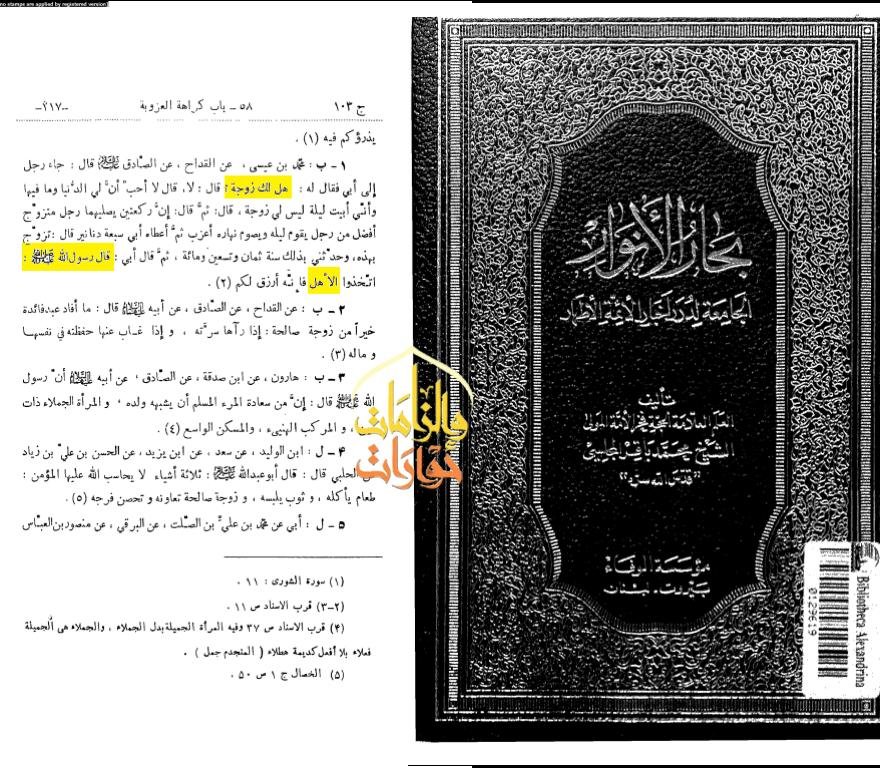 no stamps are applied by registered version)
ج ١٠٣
٥٨ ــ باب كراهة العزوبة
ــ٢١٧ــ
يذرؤكم فيه (١) .
١ ــ ب : محمّد بن عيسى ، عن القداح ، عن الصّادق عليه السلام قال : جاء رجل
إلى أبي فقال له : هل لك زوجة ؟ قال : لا، قال لا أحبّ أنّ لي الدّنيا وما فيها
وأنّي أبيت ليلة ليس لي زوجة ، قال: ثمّ قال: إنّ ركعتين يصليهما رجل متزوّج
أفضل من رجل يقوم ليله ويصوم نهاره أعزب ثمّ أعطاه أبي سبعة دنانير قال :تزوّج
بهذه، وحدّثني بذلك سنة ثمان وتسعين ومائة ، ثمّ قال أبي : قال رسول الله ﷺ :
اتّخذوا الأهل فإنّه أرزق لكم (٢) .
٢ ــ ب : عن القداح ، عن الصّادق ، عن أبيه عليه السلام قال : ما أفاد عبدفائدة
خيراً من زوجة صالحة : إذا رآها سرّته ، و إذا غاب عنها حفظته في نفسها
و ماله (٣) .
٣ ــ ب : هارون ، عن ابن صدقة ، عن الصّادق ، عن أبيه عليه السلام أنّ رسول
الله ﷺ قال : إنّ من سعادة المرء المسلم أن يشبهه ولده ، و المرأة الجملاء ذات
، و المركب الهنيىء ، والمسكن الواسع (٤) .
٤ ــ ل : ابن الوليد ، عن سعد ، عن ابن يزيد ، عن الحسن بن عليّ بن زياد
الحلبي قال : قال أبوعبدالله عليه السلام : ثلاثة أشياء لا يحاسب الله عليها المؤمن :
طعام يأكله ، و ثوب يلبسه ، و زوجة صالحة تعاونه و تحصن فرجه (٥) .
٥ ــ ل : أبي عن محمّد بن عليّ بن الصّلت ، عن البرقي ، عن منصوربن العبّاس
(١) سورة الشورى : ١١ .
(٢-٣) قرب الاسناد ص ١١ .
(٤) قرب الاسناد ص ٣٧ وفيه المرأة الجميلة بدل الجملاء ، والجملاء هى الجميلة
فعلاء بلا أفعل كديمة هطلاء ( المنجد م جمل ) .
(٥) الخصال ج ١ ص ٥٠ .
والزامات
حوارات
بحار الأنوار
الجامعة لدرر أخبار الأئمة الأطهار
تأليف
العلم العلامة الحجة فخر الأمة المولى
الشيخ محمد باقر المجلسي
"قدس الله سره"
مؤسسة الوفاء
بيروت ـ لبنان
Bibliotheca Alexandrina
0129619